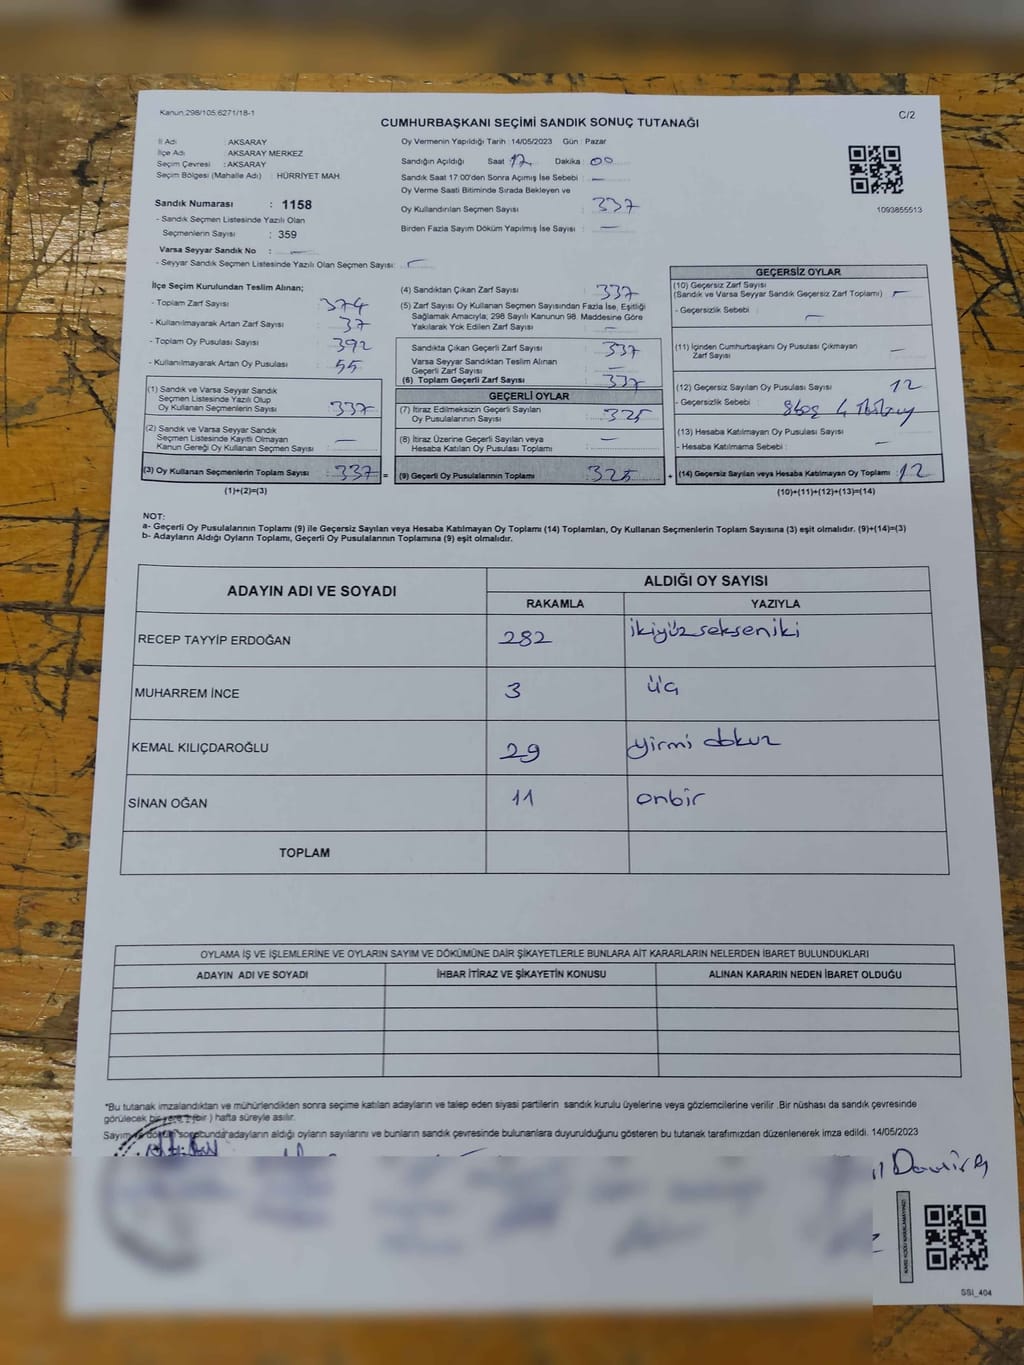 Kanun;298/105;6271/18-1
C/2
CUMHURBAŞKANI SEÇİMİ SANDIK SONUÇ TUTANAĞI
İl Adı : AKSARAY
İlçe Adı : AKSARAY MERKEZ
Seçim Çevresi : AKSARAY
Seçim Bölgesi (Mahalle Adı) : HÜRRİYET MAH.
Sandık Numarası : 1158
- Sandık Seçmen Listesinde Yazılı Olan
Seçmenlerin Sayısı : 359
Varsa Seyyar Sandık No : —
- Seyyar Sandık Seçmen Listesinde Yazılı Olan Seçmen Sayısı: —
Oy Vermenin Yapıldığı Tarih :14/05/2023 Gün : Pazar
Sandığın Açıldığı Saat 17 Dakika : 00
Sandık Saat 17:00'den Sonra Açımış İse Sebebi : —
Oy Verme Saati Bitiminde Sırada Bekleyen ve
Oy Kullandırılan Seçmen Sayısı : 337
Birden Fazla Sayım Döküm Yapılmış İse Sayısı : —
1093855513
İlçe Seçim Kurulundan Teslim Alınan;
- Toplam Zarf Sayısı : 374
- Kullanılmayarak Artan Zarf Sayısı : 37
- Toplam Oy Pusulası Sayısı : 392
- Kullanılmayarak Artan Oy Pusulası : 55
(1) Sandık ve Varsa Seyyar Sandık
Seçmen Listesinde Yazılı Olup
Oy Kullanan Seçmenlerin Sayısı : 337
(2) Sandık ve Varsa Seyyar Sandık
Seçmen Listesinde Kayıtlı Olmayan
Kanun Gereği Oy Kullanan Seçmen Sayısı : —
(3) Oy Kullanan Seçmenlerin Toplam Sayısı : 337 =
(1)+(2)=(3)
(4) Sandıktan Çıkan Zarf Sayısı : 337
(5) Zarf Sayısı Oy Kullanan Seçmen Sayısından Fazla İse, Eşitliği
Sağlamak Amacıyla; 298 Sayılı Kanunun 98. Maddesine Göre
Yakılarak Yok Edilen Zarf Sayısı : —
Sandıkta Çıkan Geçerli Zarf Sayısı : 337
Varsa Seyyar Sandıktan Teslim Alınan
Geçerli Zarf Sayısı : —
(6) Toplam Geçerli Zarf Sayısı : 337
GEÇERLİ OYLAR
(7) İtiraz Edilmeksizin Geçerli Sayılan
Oy Pusulalarının Sayısı : 325
(8) İtiraz Üzerine Geçerli Sayılan veya
Hesaba Katılan Oy Pusulası Toplamı : —
(9) Geçerli Oy Pusulalarının Toplamı : 325 +
GEÇERSİZ OYLAR
(10) Geçersiz Zarf Sayısı
(Sandık ve Varsa Seyyar Sandık Geçersiz Zarf Toplamı) : —
- Geçersizlik Sebebi : —
(11) İçinden Cumhurbaşkanı Oy Pusulası Çıkmayan
Zarf Sayısı : —
(12) Geçersiz Sayılan Oy Pusulası Sayısı : 12
- Geçersizlik Sebebi :
(13) Hesaba Katılmayan Oy Pusulası Sayısı :
- Hesaba Katılmama Sebebi : —
(14) Geçersiz Sayılan veya Hesaba Katılmayan Oy Toplamı : 12
(10)+(11)+(12)+(13)=(14)
NOT:
a- Geçerli Oy Pusulalarının Toplamı (9) ile Geçersiz Sayılan veya Hesaba Katılmayan Oy Toplamı (14) Toplamları, Oy Kullanan Seçmenlerin Toplam Sayısına (3) eşit olmalıdır. (9)+(14)=(3)
b- Adayların Aldığı Oyların Toplamı, Geçerli Oy Pusulalarının Toplamına (9) eşit olmalıdır.
ADAYIN ADI VE SOYADI
ALDIĞI OY SAYISI
RAKAMLA YAZIYLA
RECEP TAYYİP ERDOĞAN 282 ikiyüzsekseniki
MUHARREM İNCE 3 üç
KEMAL KILIÇDAROĞLU 29 yirmi dokuz
SİNAN OĞAN 11 onbir
TOPLAM
OYLAMA İŞ VE İŞLEMLERİNE VE OYLARIN SAYIM VE DÖKÜMÜNE DAİR ŞİKAYETLERLE BUNLARA AİT KARARLARIN NELERDEN İBARET BULUNDUKLARI
ADAYIN ADI VE SOYADI İHBAR İTİRAZ VE ŞİKAYETİN KONUSU ALINAN KARARIN NEDEN İBARET OLDUĞU
*Bu tutanak imzalandıktan ve mühürlendikten sonra seçime katılan adayların ve talep eden siyasi partilerin sandık kurulu üyelerine veya gözlemcilerine verilir .Bir nüshası da sandık çevresinde
görülecek bir yere 1 (bir ) hafta süreyle asılır.
Sayım ve döküm sonubunda adayların aldığı oyların sayılarını ve bunların sandık çevresinde bulunanlara duyurulduğunu gösteren bu tutanak tarafımızdan düzenlenerek imza edildi. 14/05/2023
SSI_404